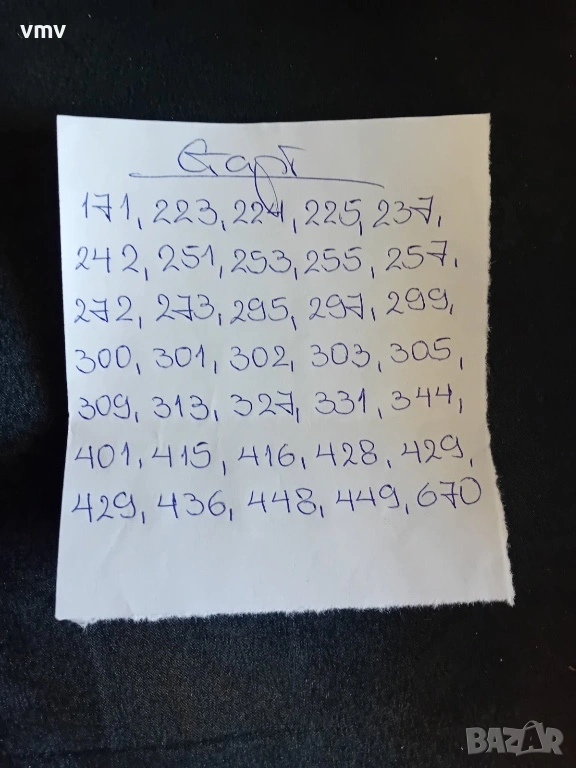 vmv
Старт
171, 223, 224, 225, 237,
242, 251, 253, 255, 257,
272, 273, 295, 297, 299,
300, 301, 302, 303, 305,
309, 313, 327, 331, 344,
401, 415, 416, 428, 429,
429, 436, 448, 449, 670
BAZAR